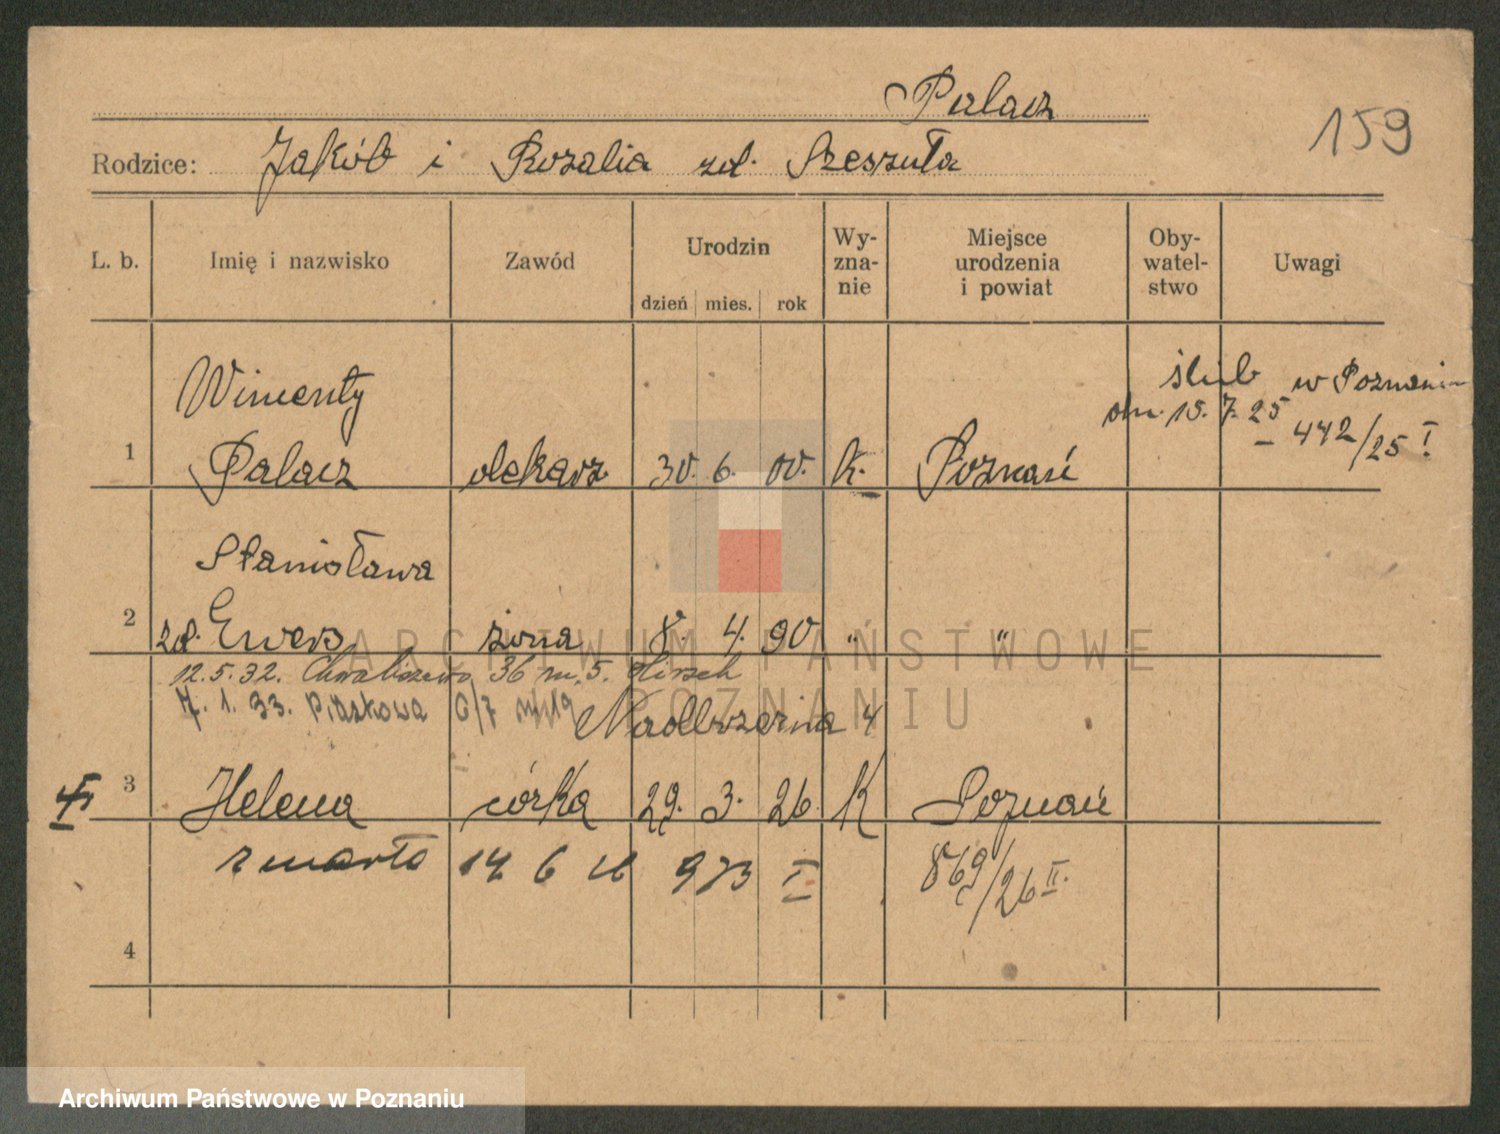 Palacz
159
Rodzice: Jakób i Rozalia zd. Szeszuła
L. b. Imię i nazwisko Zawód Urodzin dzień mies. rok Wy-zna-nie Miejsce urodzenia i powiat Oby-watel-stwo Uwagi
ślub w Poznaniu
dn. 15. 7. 25 – 442/25 I
Wincenty
1 Palacz 30. 6. 00. k. Poznań
Stanisława
2 zd. Ewers żona 8. 4. 90 " "
12.5.32. Chwaliszewo 36 m. 5. Hirsch
1. 33. Piaskowa 6/7
Nadbrzeżna 4
3 Helena córka 29. 3. 26. K Poznań
zmarła 14 6 26 973 I 869/26 II.
4
ARCHIWUM PAŃSTWOWE
POZNANIU
Archiwum Państwowe w Poznaniu